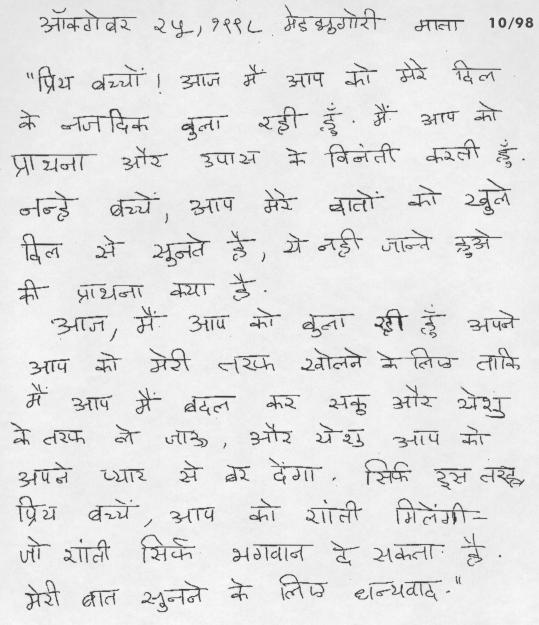 ऑक्टोबर २५, १९९८ मेडझुगोरी माता 10/98
"प्रिय बच्चों! आज मैं आप को मेरे दिल
के नजदिक बुला रही हूँ. मैं आप को
प्राथना और उपास के विनंती करती हूँ.
नन्हे बच्चें, आप मेरे बातों को खुले
दिल से सुनते है, ये नही जान्ते हुअे
की प्राथना क्या है.
आज, मैं आप को बुला रही हूँ अपने
आप को मेरी तरफ खोलने के लिए ताकि
मैं आप मैं बदल कर सकु और येशु
के तरफ ले जाऊ, और येशु आप को
अपने प्यार से भर देंगा. सिर्फ इस तरह
प्रिय बच्चें, आप को शांती मिलेंगी –
जो शांती सिर्फ भगवान दे सकता है.
मेरी बात सुनने के लिए धन्यवाद."